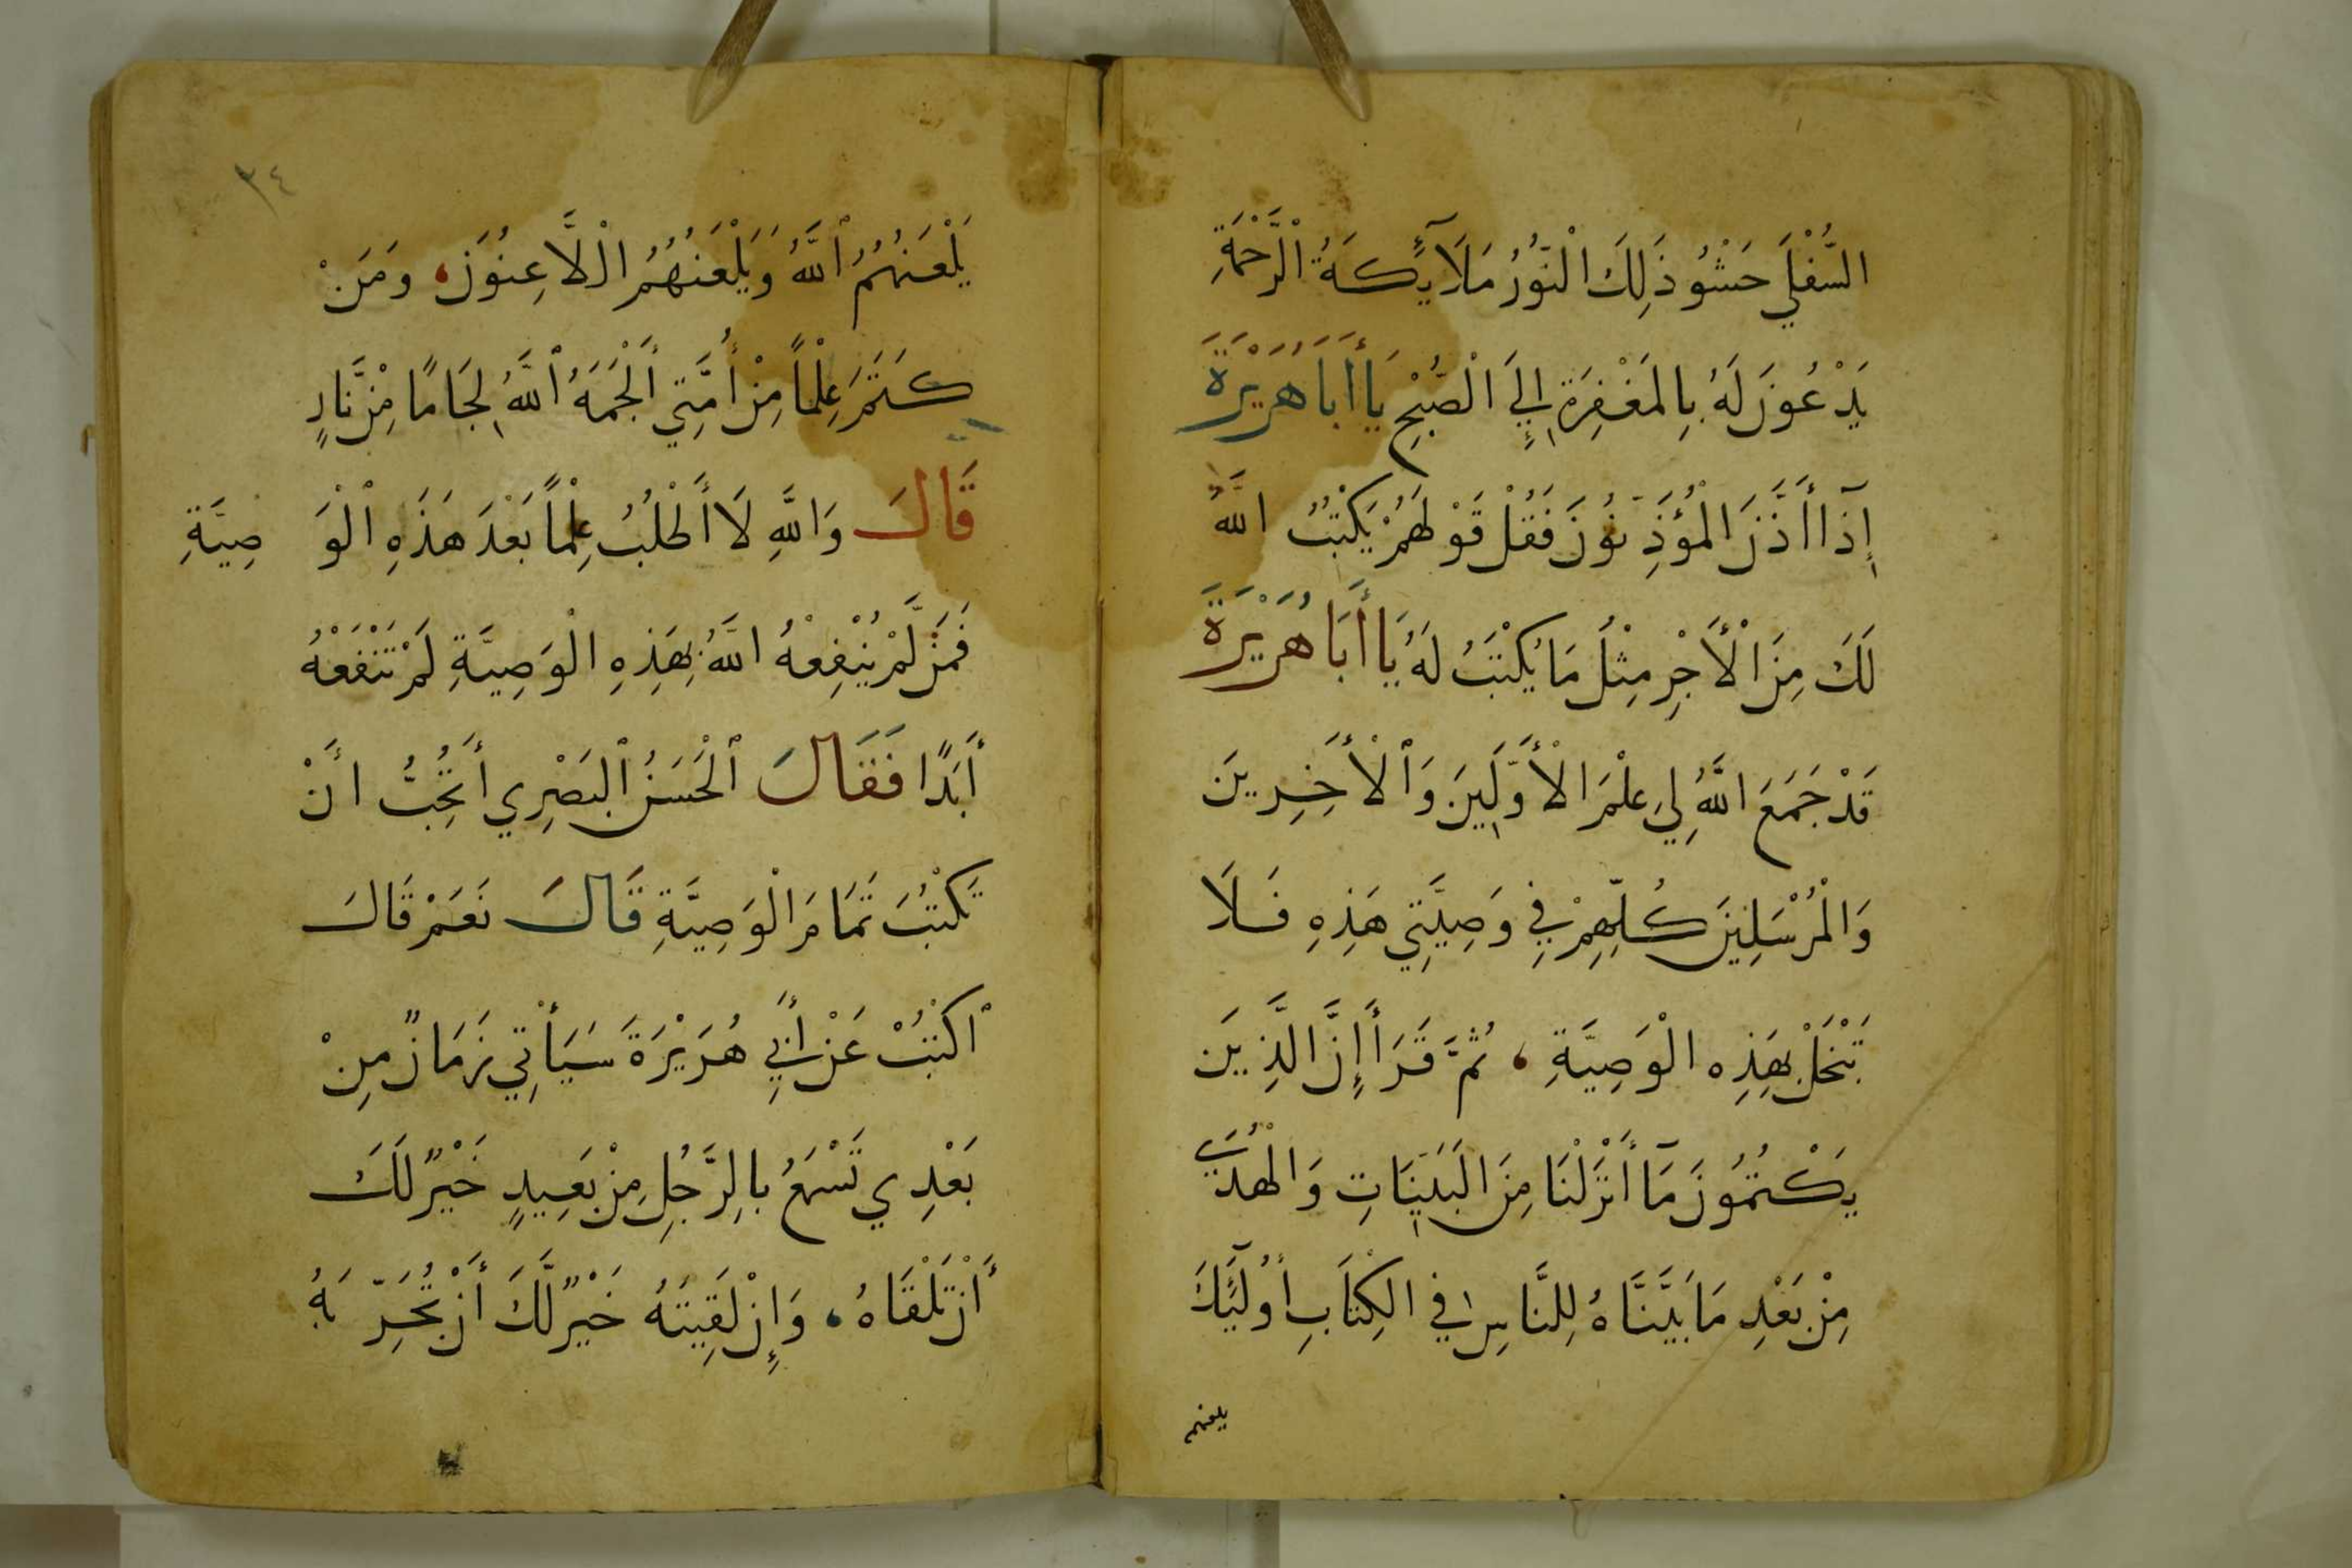 السُّفْلَي حَشْوُ ذَلِكَ الْنُّوْرُ مَلَآئِكَةُ الْرَّحْمَةِ
يَدْعُونَ لَهُ بِالمَغْفِرَةِ إِلَي الْصُّبْحِ يَا أَبَا هُرَيْرَةَ
إِذَا أَذَّنَ الْمُؤَذِّنُونَ فَقُلْ قَوْلَهُمْ يَكْتُبُ اللَّهُ
لَكَ مِنَ الْأَجْرِ مِثْلُ مَا يُكْتَبُ لَهُ يَا أَبَا هُرَيْرَةَ
قَدْ جَمَعَ اللَّهُ لِي عِلْمَ الْأَوَّلِينَ وَالْأَخِرِينَ
وَالْمُرْسَلِينَ كُلِّهِمْ فِي وَصِيَّتِي هَذِهِ فَلَا
تَبْخَلْ بِهَذِهِ الْوَصِيَّةِ، ثُمَّ قَرَأَ إِنَّ الَّذِينَ
يَكْتُمُونَ مَآ أَنْزَلْنَا مِنَ الْبَيِّنَاتِ وَالْهُدَي
مِنْ بَعْدِ مَا بَيَّنَّاهُ لِلنَّاسِ فِي الكِتَابِ أُوْلَئِكَ
يلعنهم
٣٤
يَلْعَنُهُمُ اللَّهُ وَيَلْعَنُهُمُ الْلَّاعِنُوْنَ، وَمَنْ
كَتَمَ عِلْماً مِنْ أُمَّتِي أَلْجَمَهُ اللَّهُ لِجَامًا مِنْ نَّارٍ
قَالَ وَاللَّهِ لَا أَطْلُبُ عِلْماً بَعْدَ هَذَهِ الْوَصِيَّةِ
فَمَنْ لَّمْ يُنْفِعْهُ اللَّهُ بِهَذِهِ الْوَصِيَّةِ لَمْ تَنْفَعْهُ
أَبَدًا فَقَالَ الْحَسَنُ البَصْرِي أَتُحِبُّ أَنْ
تَكْتُبَ تَمَامَ الْوَصِيَّةِ قَالَ نَعَمْ قَالَ
اكْتُبْ عَنْ أَبِي هُرَيْرَةَ سَيَأْتِي زَمَانٌ مِنْ
بَعْدِي تَسْمَعُ بِالرَّجُلِ مِنْ بَعِيدٍ خَيْرٌ لَكَ
أَنْ تَلْقَاهُ، وَإِنْ لَقِيتَهُ خَيْرٌ لَّكَ أَنْ تُجَرِّبَهُ